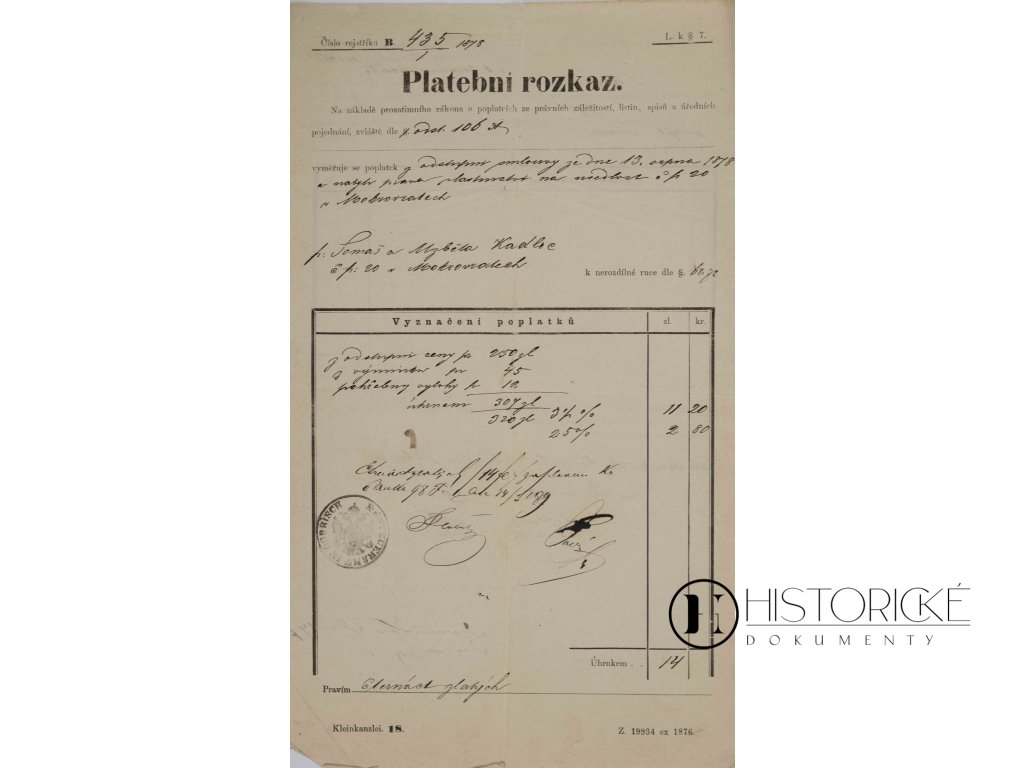 Číslo rejstříka B. 435/1878
L. k §. 7.
Platební rozkaz.
Na základě prozatimního zákona o poplatcích ze právních záležitostí, listin, spisů a úředních
pojednání, zvláště dle p. odst. 106 A
vyměřuje se poplatek z odstupní smlouvy ze dne 13. srpna 1878
a nabytí práva vlastnictví na usedlost č p 20
v Mokrovratech
p: Tomáš a Alžběta Kadlec
č p: 20 v Mokrovratech
k nerozdílné ruce dle §. 68. 72
Vyznačení poplatků
zl.
kr.
z odstupní ceny pr 250 zl
z výminku pr 45
pohřební výlohy pr 12
úhrnem 307 zl
320 zl 3½ %
11 20
25%
2 80
14 zl. zaplaceno
Úhrnkem . .
14
Pravím čtrnáct zlatých
Kleinkanzlei. 18.
Z. 19934 ex 1876.
HISTORICKÉ
DOKUMENTY